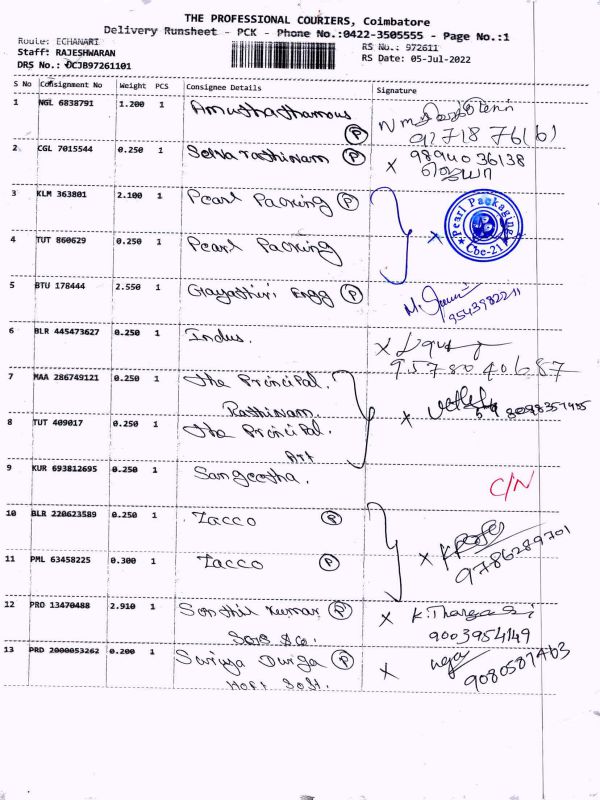 THE PROFESSIONAL COURIERS, Coimbatore
Delivery Runsheet - PCK - Phone No.:0422-3505555 - Page No.:1
Route: ECHANARI
Staff: RAJESHWARAN
DRS No.: DCJB97261101
RS No.: 972611
RS Date: 05-Jul-2022
S No Consignment No Weight PCS Consignee Details Signature
1 NGL 6838791 1.200 1 Amuthathamous P
2 CGL 7015544 0.250 1 Selva rathinam P X 98940 36138
3 KLM 363801 2.100 1 Pearl Packing P X Pearl Packaging * Cbe-21 *
4 TUT 860629 0.250 1 Pearl Packing
5 BTU 178444 2.550 1 Gayathiri Engg P
9543982211
6 BLR 445473627 0.250 1 Indus. X
95780 40687
7 MAA 286749121 0.250 1 The Principal.
Rathinam. X
8 TUT 409017 0.250 1 The Principal.
Art
9 KUR 693812695 0.250 1 Sangeetha. C/N
10 BLR 220623589 0.250 1 Zacco P
11 PML 63458225 0.300 1 Zacco P X 9786289701
12 PRO 13470488 2.910 1 Senthil Kumar P X
Sons & Co. 9003954149
13 PRD 2000053262 0.200 1 Suriya Durga P X
9080587463